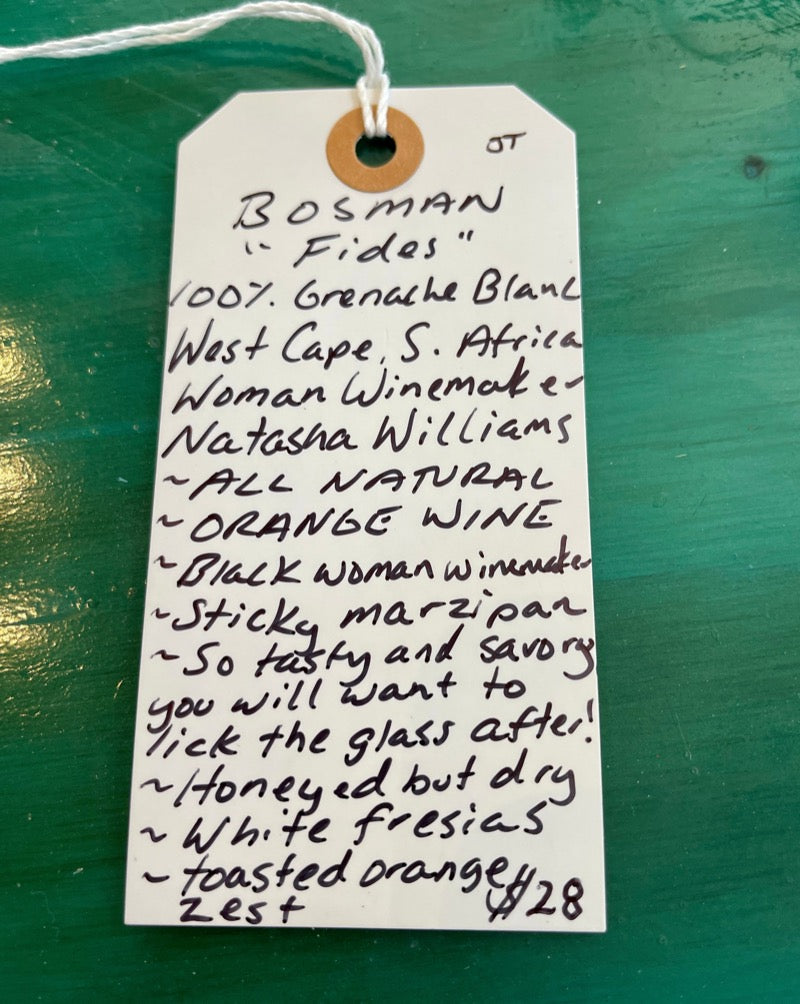 JT
BOSMAN
"Fides"
100% Grenache Blanc
West Cape, S. Africa
Woman Winemaker
Natasha Williams
~ALL NATURAL
~ORANGE WINE
~Black woman winemaker
~Sticky marzipan
~So tasty and savory
you will want to
lick the glass after!
~Honeyed but dry
~White fresias
~toasted orange
zest $28